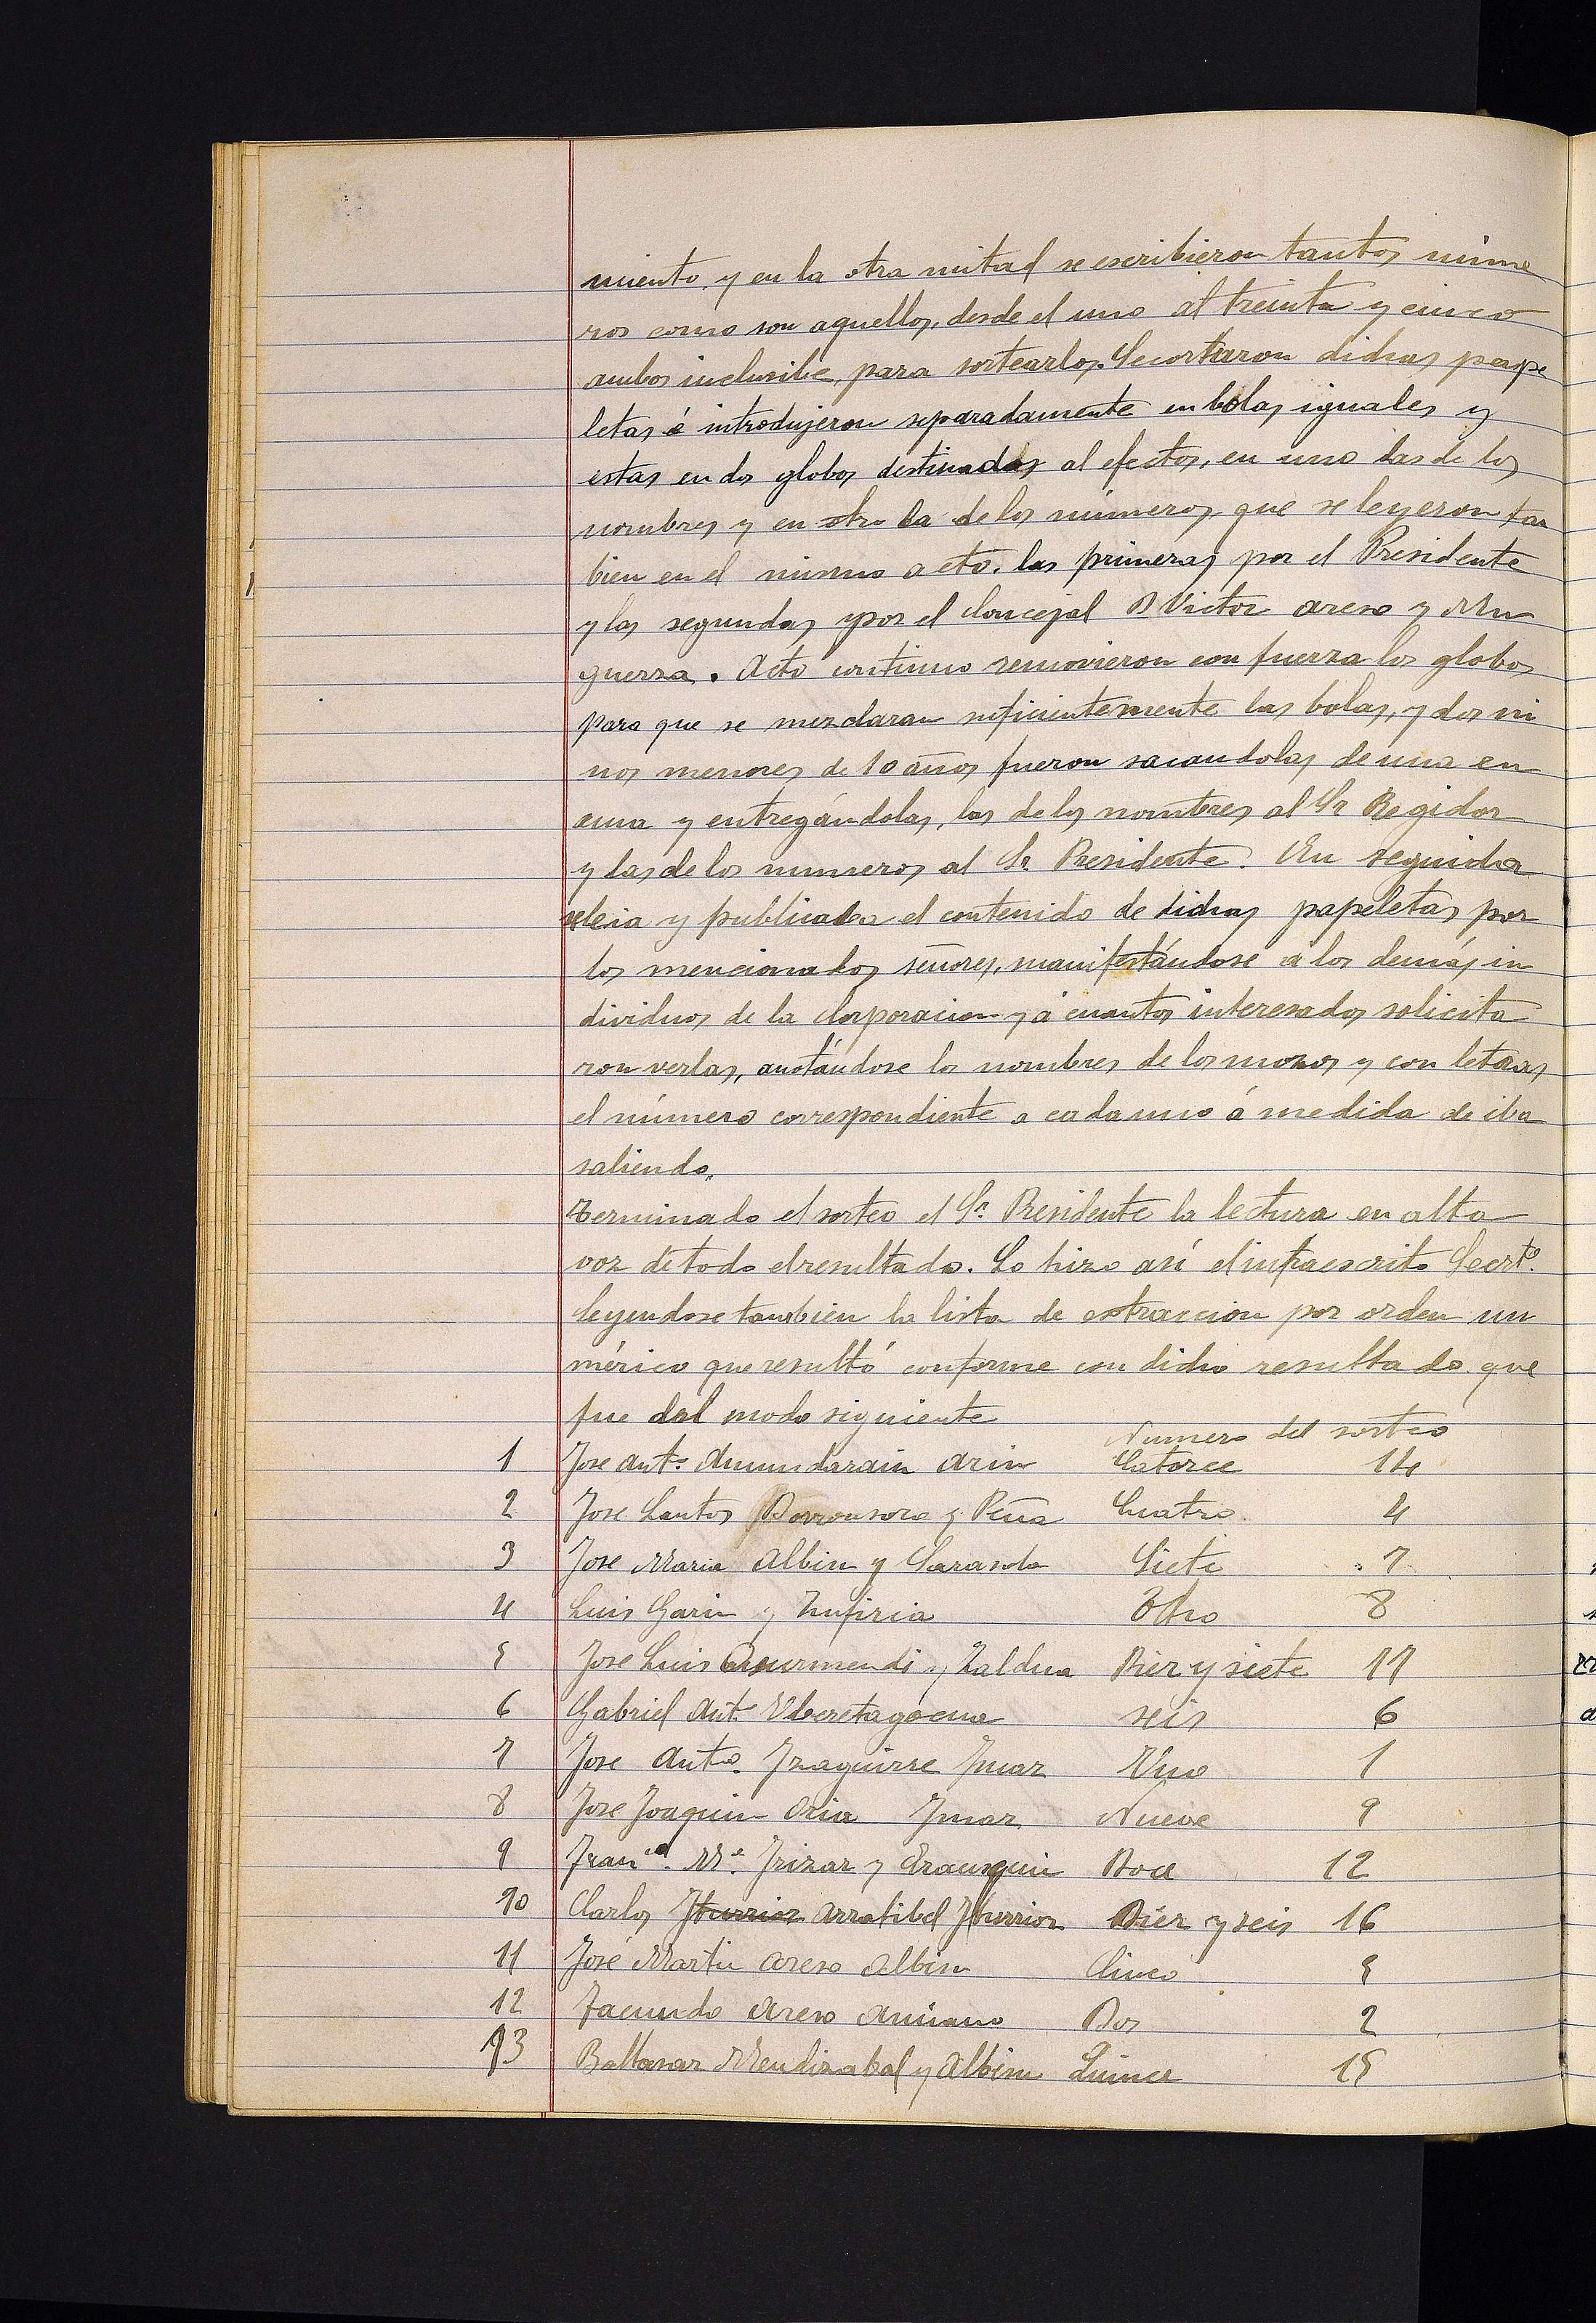 miento, y en la otra mitad se escribieron tantos núme
ros como son aquellos, desde el uno al treinta y cinco
ambos inclusibe, para sortearlos. Se cortaron dichas pape
letas é introdujeron separadamente en bolas iguales y
estas en dos globos destinados al efectos, en uno las de los
nombres y en otro la de los números, que se leyeron tan
bien en el mismo acto. las primeras por el Presidente
y las segundas por el Concejal D Victor Areso y Mu
guerza. Acto continuo removieron con fuerza los globos
para que se mezclaran suficientemente las bolas, y dos ni
nos menores de 10 años fueron sacandolas de una en
una y entregándolas, las de los nombres al Sr Regidor
y las de los numeros al Sr. Presidente. En seguida
se leia y publicaba el contenido de dichas papeletas por
los mencionados señores, manifestándose a los demás in
dividuos de la Corporacion y á cuantos interesados solicita
ron verlas, anotándose los nombres de los mozos y con letras
el número correspondiente a cada uno á medida de iba
saliendo.
Terminado el sorteo el Sr. Presidente la lectura en alta
voz de todo el resultado. Lo hizo así el infraescrito Secrt.º
leyendose tambien la lista de estraccion por orden nu
mérico que resultó conforme con dicho resultado que
fue del modo siguiente
Numero del sorteo
1 Jose Ant.º Amundarain Arin Catorce 14
2 Jose Santos Borronsoro y Peña Cuatro 4
3 Jose Maria Albin y Sarasola Siete 7
4 Luis Garin y Zufiria Ocho 8
5 Jose Luis Gurmendi y Zaldua Diez y siete 17
6 Gabriel Ant. Uberetagoena seis 6
7 Jose Ant.º Izaguirre Imaz Uno 1
8 Jose Joaquin Oria Imaz Nueve 9
9 Fran.co M.ª Irizar y Erausquin Doce 12
10 Carlos Iturrioz Arratibel Iturrioz Diez y seis 16
11 José Martin Areso Albisu Cinco 5
12 Facundo Areso Amiano Dos 2
13 Baltasar Mendizabal y Albisu Quince 15